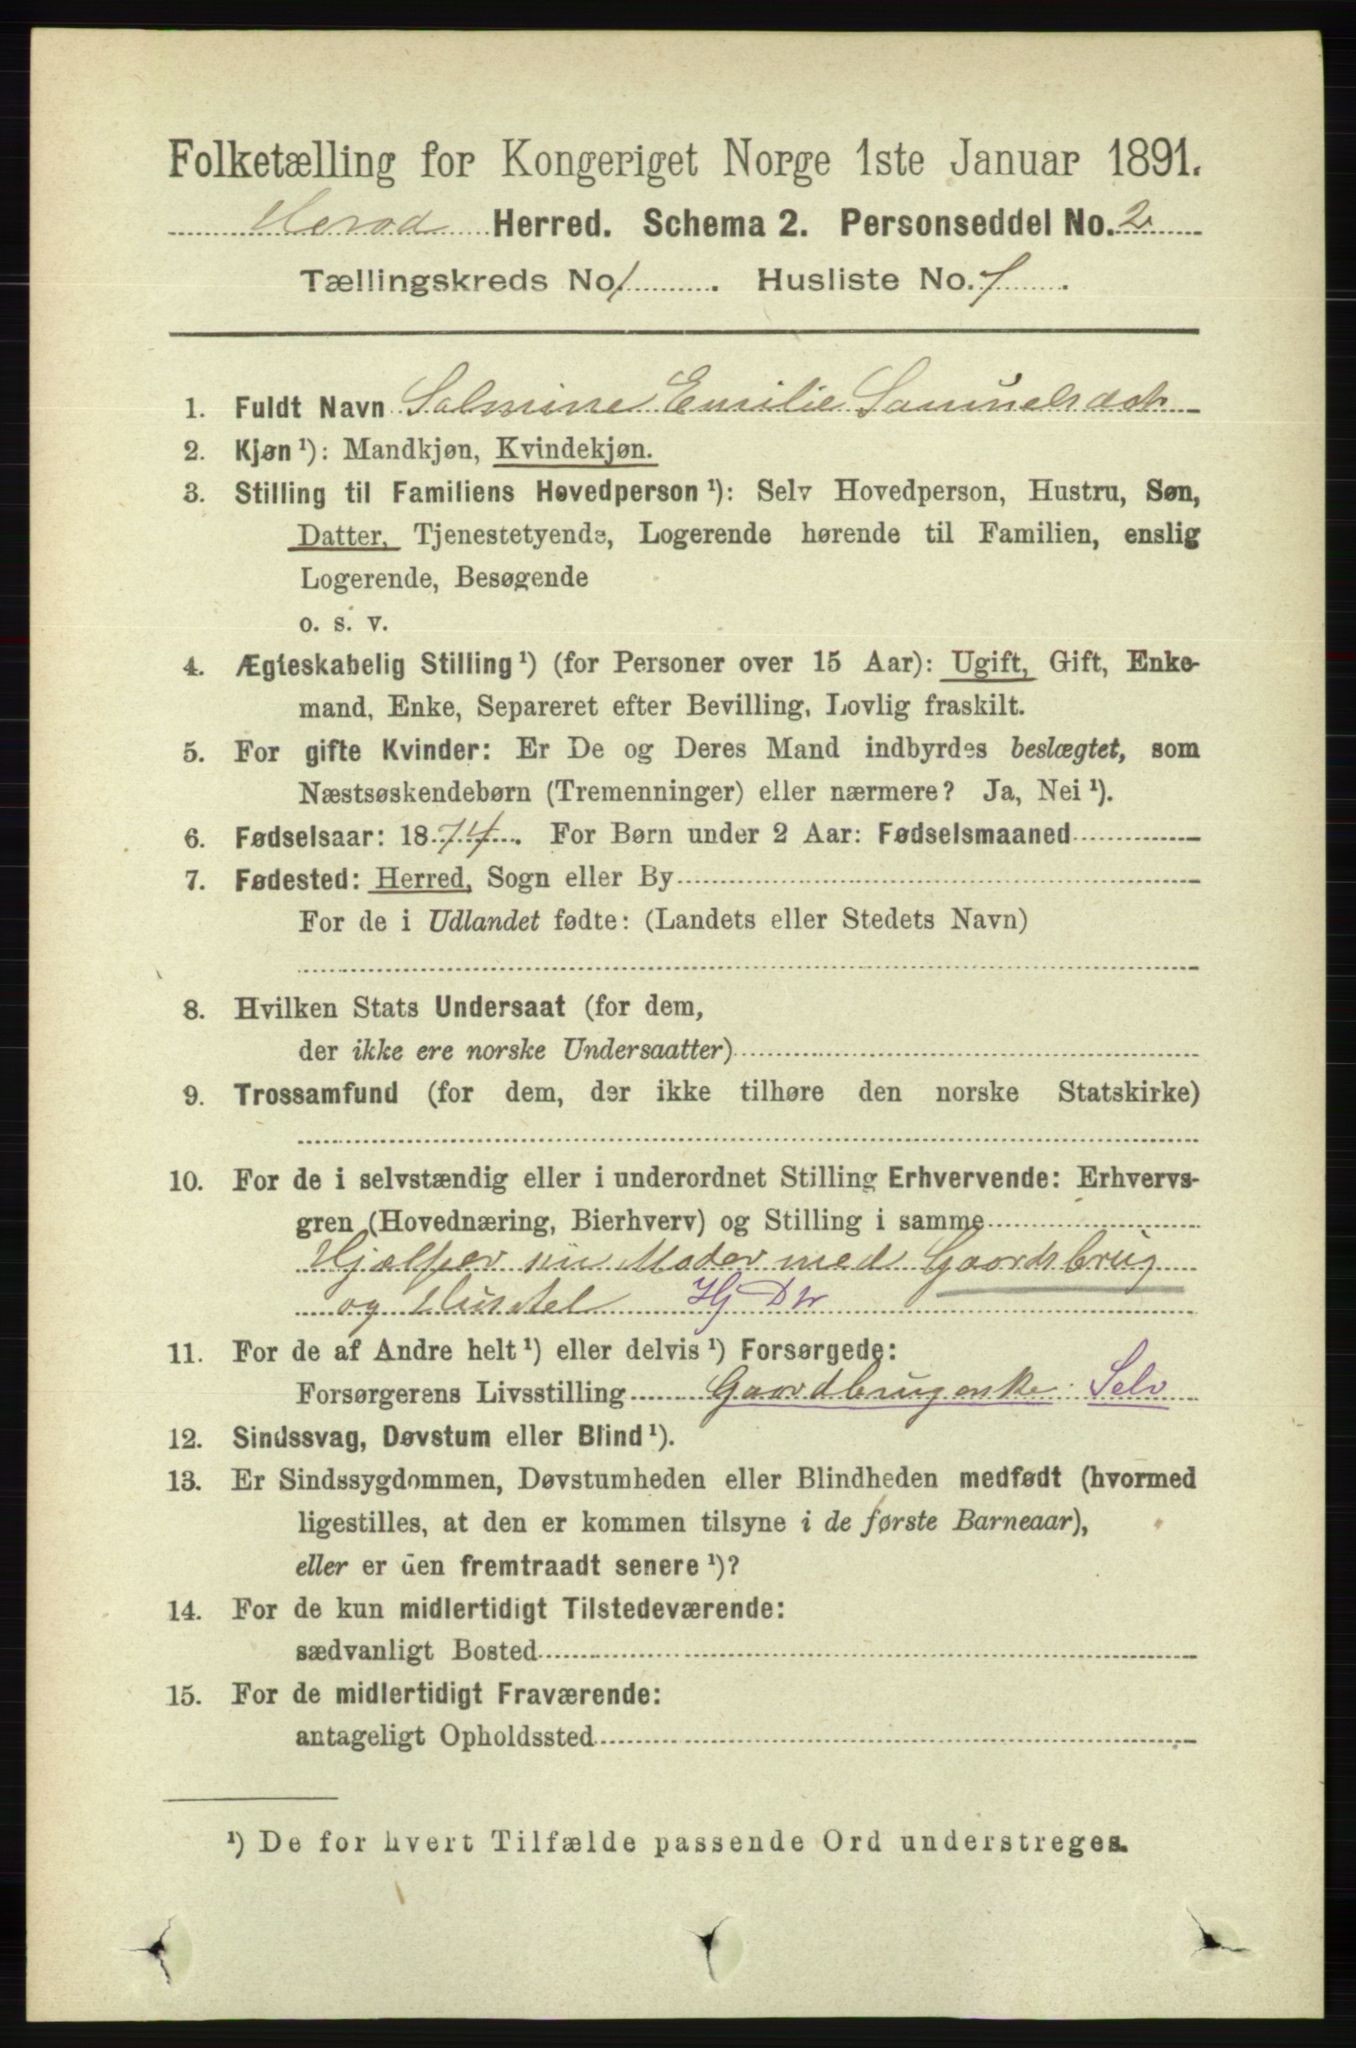 Folketælling for Kongeriget Norge 1ste Januar 1891.
Herad Herred. Schema 2. Personseddel No. 2
Tællingskreds No 1. Husliste No. 7.
1. Fuldt Navn Salmine Emilie Samuelsdat
2. Kjøn¹): Mandkjøn, Kvindekjøn.
3. Stilling til Familiens Hovedperson¹): Selv Hovedperson, Hustru, Søn,
Datter, Tjenestetyende, Logerende hørende til Familien, enslig
Logerende, Besøgende
o. s. v.
4. Ægteskabelig Stilling¹) (for Personer over 15 Aar): Ugift, Gift, Enke-
mand, Enke, Separeret efter Bevilling, Lovlig fraskilt.
5. For gifte Kvinder: Er De og Deres Mand indbyrdes beslægtet, som
Næstsøskendebørn (Tremenninger) eller nærmere? Ja, Nei¹).
6. Fødselsaar: 1874. For Børn under 2 Aar: Fødselsmaaned
7. Fødested: Herred, Sogn eller By
For de i Udlandet fødte: (Landets eller Stedets Navn)
8. Hvilken Stats Undersaat (for dem,
der ikke ere norske Undersaatter)
9. Trossamfund (for dem, der ikke tilhøre den norske Statskirke)
10. For de i selvstændig eller i underordnet Stilling Erhvervende: Erhvervs-
gren (Hovednæring, Bierhverv) og Stilling i samme
Hjælper sin Moder med Gaardsbrug
og Husstel Hj Dtr
11. For de af Andre helt¹) eller delvis¹) Forsørgede:
Forsørgerens Livsstilling Gaardbrugenske Selv
12. Sindssvag, Døvstum eller Blind¹).
13. Er Sindssygdommen, Døvstumheden eller Blindheden medfødt (hvormed
ligestilles, at den er kommen tilsyne i de første Barneaar),
eller er den fremtraadt senere¹)?
14. For de kun midlertidigt Tilstedeværende:
sædvanligt Bosted
15. For de midlertidigt Fraværende:
antageligt Opholdssted
¹) De for hvert Tilfælde passende Ord understreges.